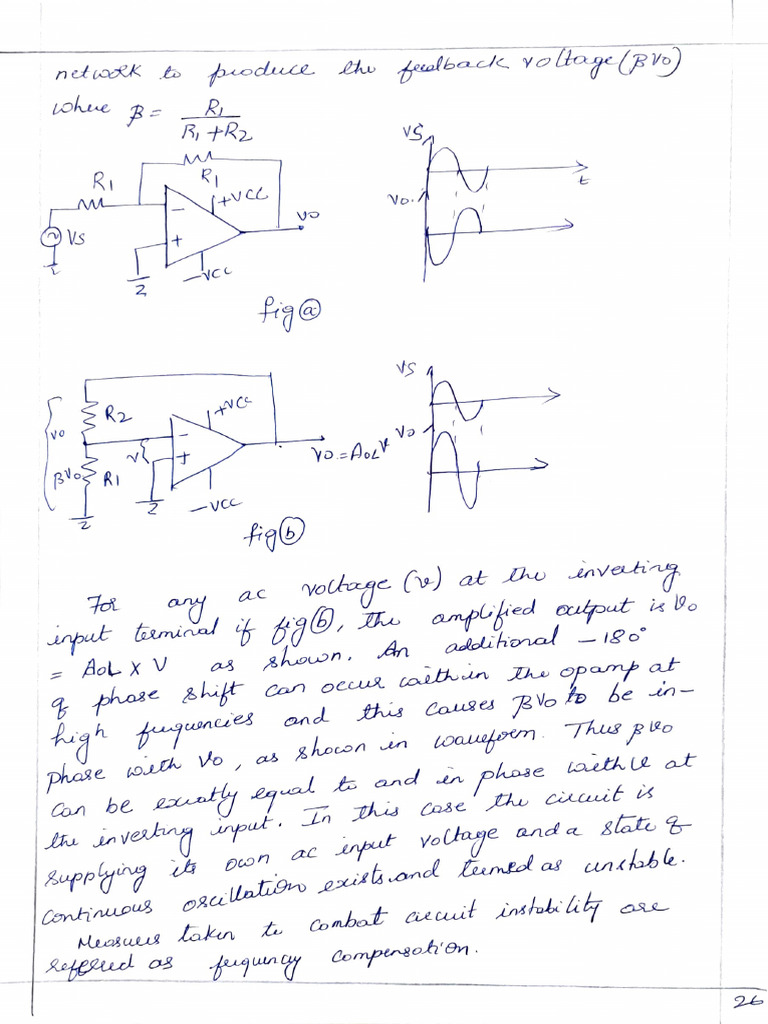 network to produce the feedback voltage (βVo)
where β = R1 / R1 + R2
R1
R1
+VCC
Vo
VS
-
+
-VCC
fig ⓐ
VS
t
Vo
R2
+VCC
Vo
V
-
+
βVo
R1
-VCC
Vo = AOL V
fig ⓑ
VS
Vo
For any ac voltage (v) at the inverting
input terminal if fig ⓑ, the amplified output is Vo
= AOL x V as shown. An additional -180°
of phase shift can occur within the opamp at
high frequencies and this causes βVo to be in-
phase with Vo, as shown in waveform. Thus βVo
can be exactly equal to and in phase with V at
the inverting input. In this case the circuit is
supplying its own ac input voltage and a state of
continuous oscillation exists and termed as unstable.
Measures taken to combat circuit instability are
reffered as frequency compensation.
26